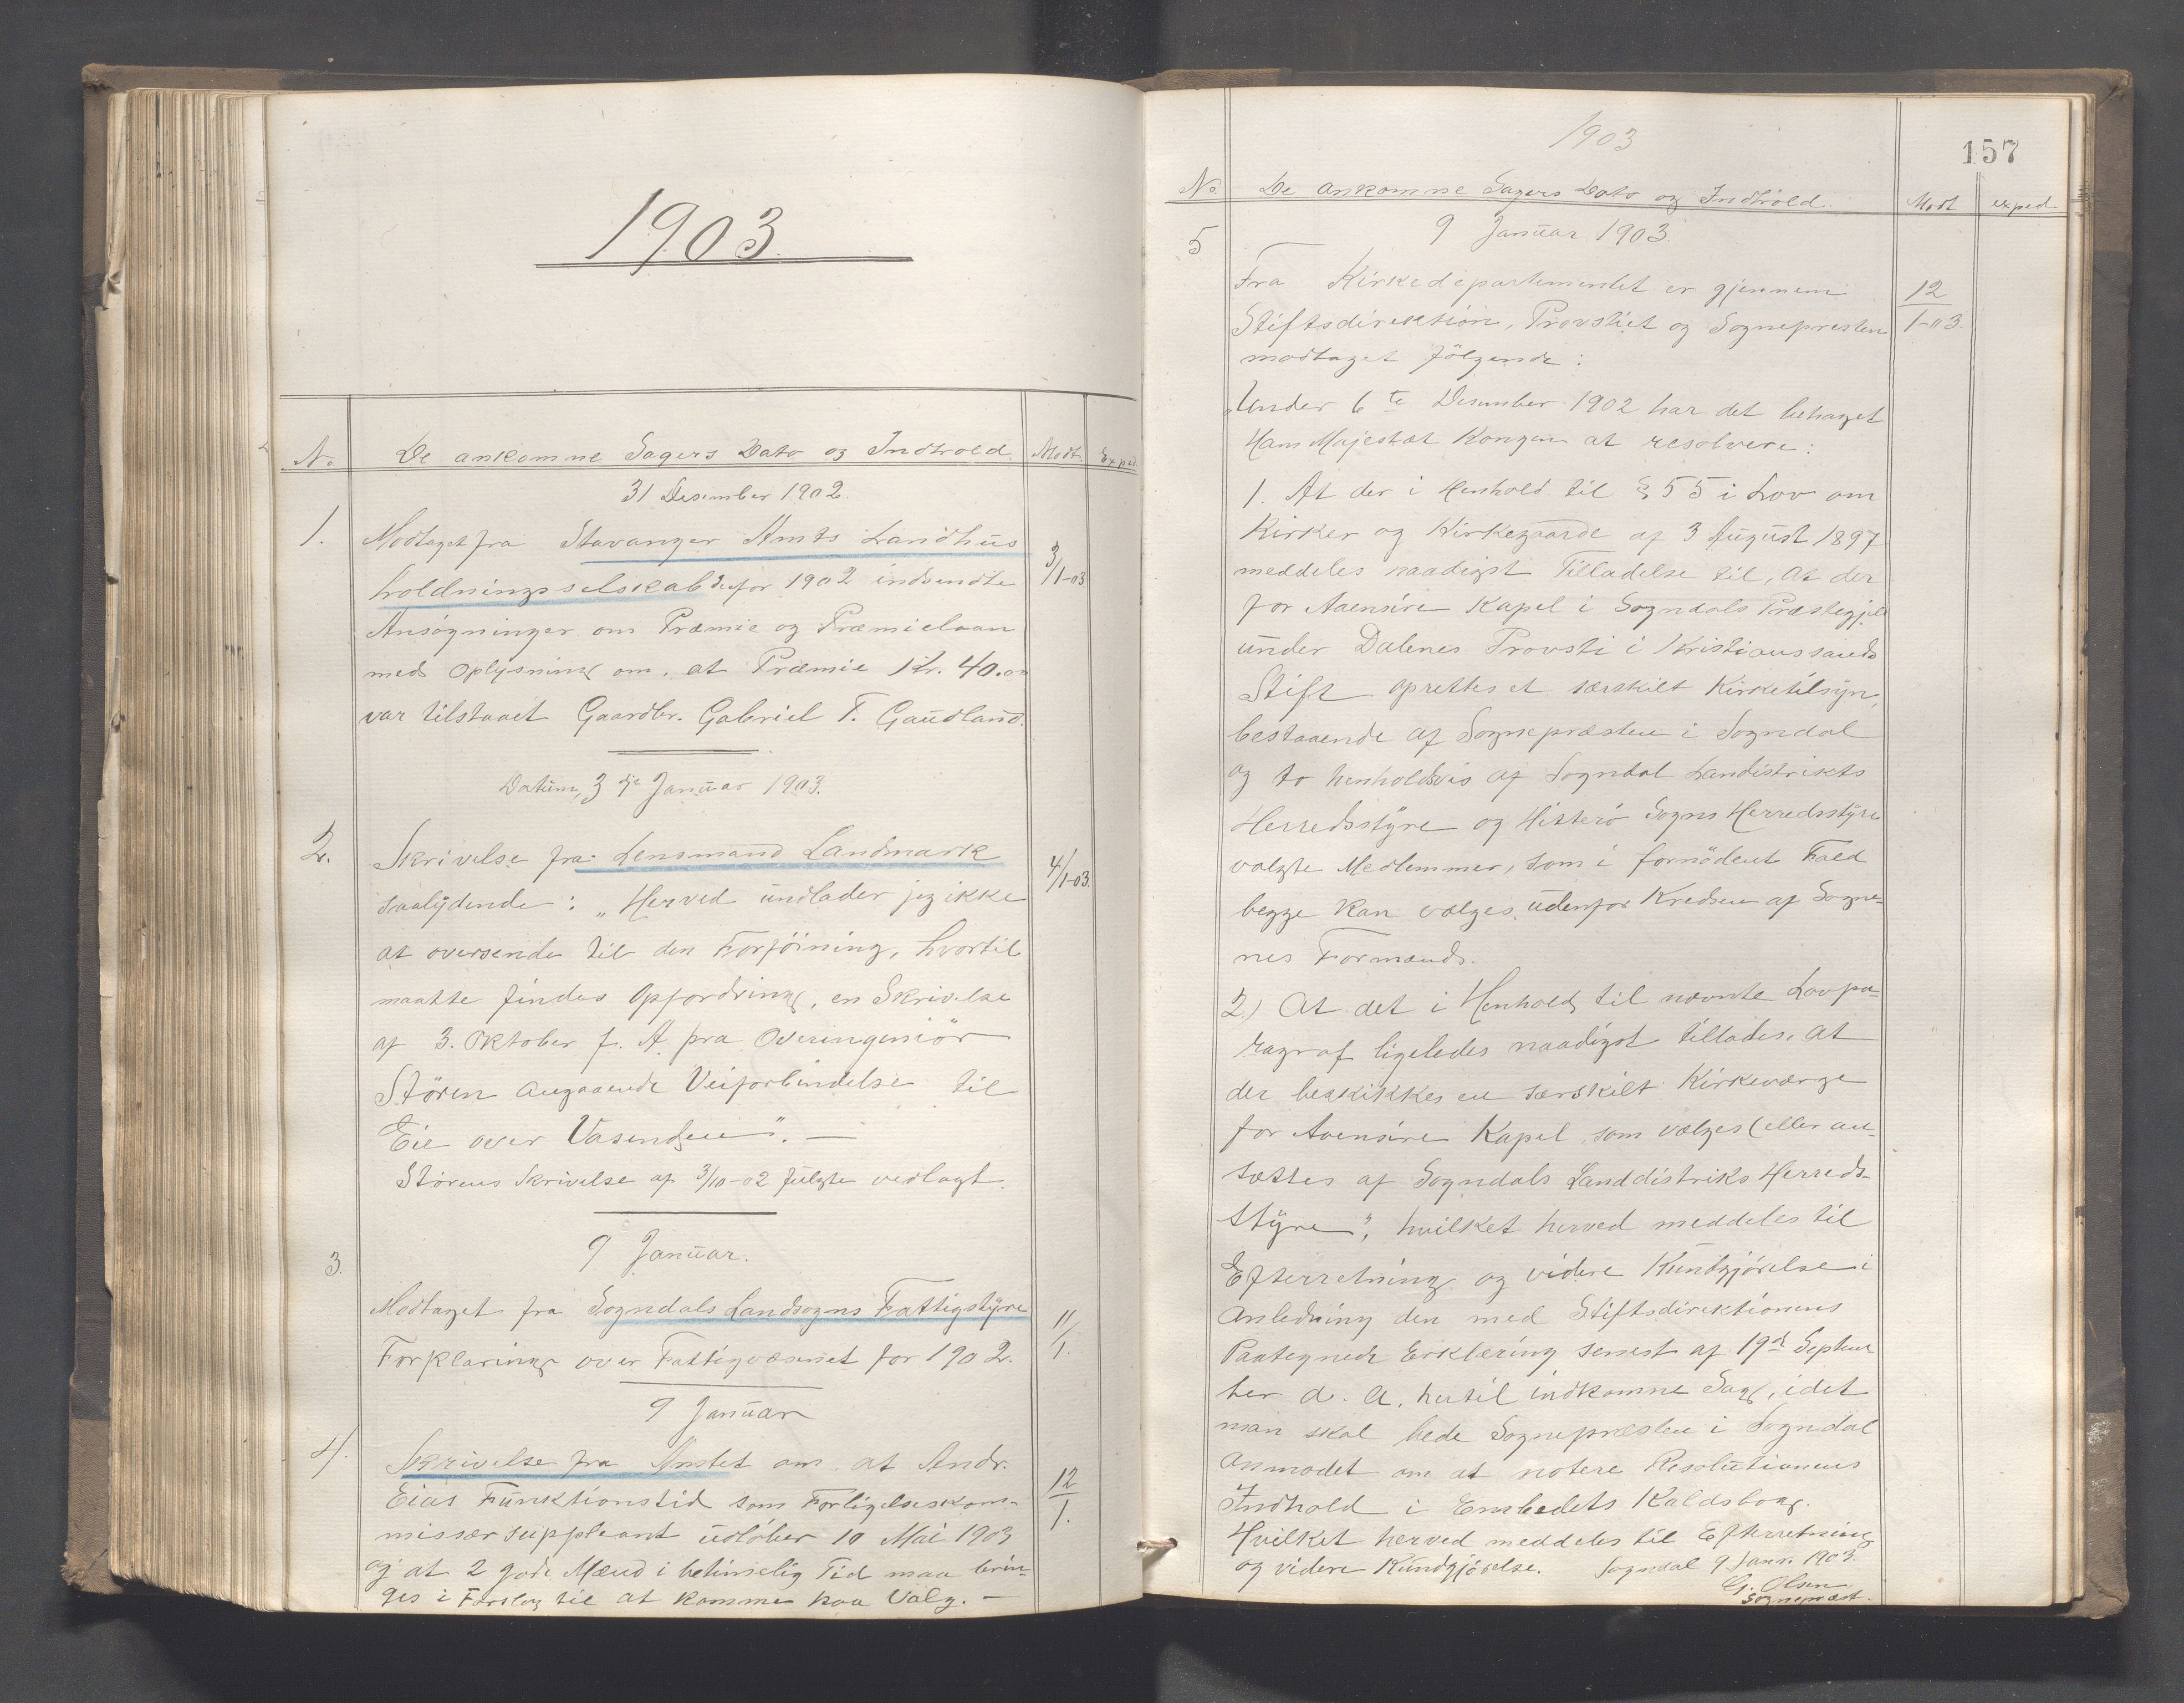 1903.
N. De ankomne Sagers Dato og Indhold. Modt. Exped.
31 Desember 1902.
1. Modtaget fra Stavanger Amts Landhus
holdningsselskab de for 1902 indsendte 3/1-03
Ansögninger om Præmie og Præmielaan
med Oplysning om, at Præmie Kr. 40.00
var tilstaaet Gaardbr. Gabriel T. Gaudland.
Datum, 3dje Januar 1903.
2. Skrivelse fra Lensmand Landmark 4/1-03.
saalydende: „Herved undlader jeg ikke
at oversende til den Forföining, hvortil
maatte findes Opfordring, en Skrivelse
af 3. Oktober f. A. fra Overingeniör
Stören angaaende Veiforbindelse til
Eie over Vasenden". —
Störens Skrivelse af 3/10-02 fulgte vedlagt.
9 Januar.
3. Modtaget fra Sogndals Landsogns Fattigstyre 11/1.
Forklaring over Fattigvæsenet for 1902.
9 Januar
4. Skrivelse fra Amtet om at Andr. 12/1.
Eias Funktionstid som Forligelseskom-
missærsuppleant udlöber 10 Mai 1903
og at 2 gode Mænd i betimelig Tid maa brin-
ges i Forslag til at komme paa Valg. —
1903
157
No De ankomne Sagers Dato og Indhold. Modt exped.
5 9 Januar 1903.
Fra Kirkedepartementet er gjennem 12
Stiftsdirektion, Provstiet og Sognepresten 1-03.
modtaget fölgende:
„Under 6te Desember 1902 har det behaget
Hans Majestæt Kongen at resolvere:
1. At der i Henhold til § 55 i Lov om
Kirker og Kirkegaarde af 3 August 1897
meddeles naadigst Tilladelse til, at der
for Aaensire Kapel i Sogndals Præstegjeld
under Dalenes Provsti i Kristianssands
Stift oprettes et særskilt Kirketilsyn,
bestaaende af Sognepræsten i Sogndal
og to henholdsvis af Sogndal Landistrikts
Herredsstyre og Hitterö Sogns Herredsstyre
valgte Medlemmer, som i fornödent Fald
begge kan vælges udenfor Kredsen af Sogne-
nes Formænd.
2) At det i Henhold til nævnte Lovpa-
ragraf ligeledes naadigst tillades, at
der beskikkes en særskilt Kirkeværge
for Aaensire Kapel, som vælges (eller an-
sættes af Sogndals Landdistrikts Herreds-
styre", hvilket herved meddeles til
Efterretning og videre Kundgjörelse i
Anledning den med Stiftsdirektionens
Paategnede Erklæring senest af 19de Septem
ber d. A. hertil indkomne Sag, idet
man skal bede Sognepræsten i Sogndal
anmodet om at notere Resolutionens
Indhold i Embedets Kaldsbog.
Hvilket herved meddeles til Efterretning
og videre Kundgjörelse. Sogndal 9 Janr. 1903.
G. Olsen
Sognepræst.